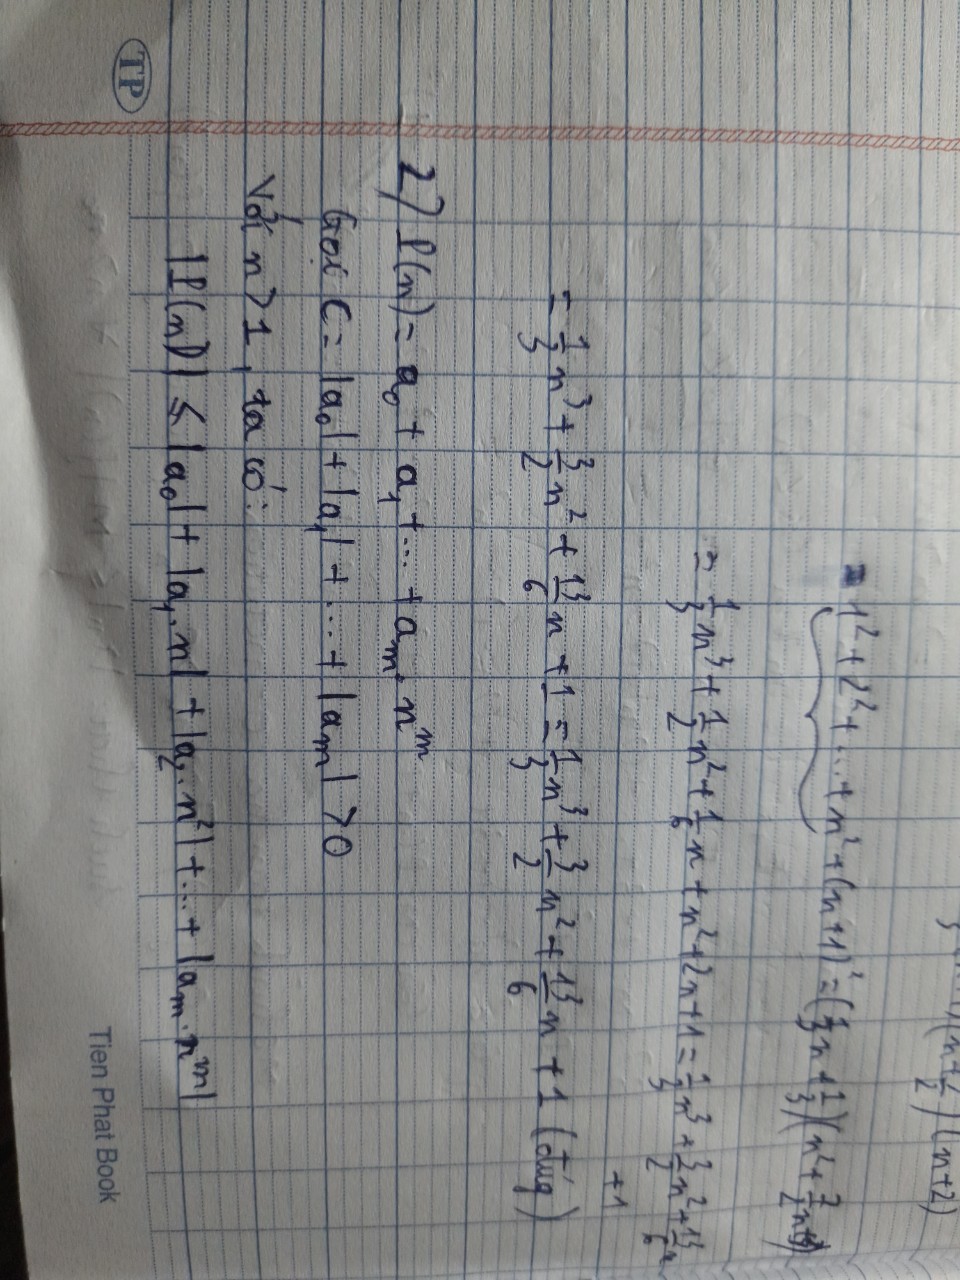 (n+2)
= 1² + 2² + ... + n² + (n+1)² = (1/3 n + 1/3)(n² + 7/2 n +
= 1/3 n³ + 1/2 n² + 1/6 n + n² + 2n + 1 = 1/3 n³ + 3/2 n² + 13/6 n
+1
= 1/3 n³ + 3/2 n² + 13/6 n + 1 = 1/3 n³ + 3/2 n² + 13/6 n + 1 (đúg)
2) P(n) = a₀ + a₁ + ... + aₘ. nᵐ
Gọi C = |a₀| + |a₁| + ... + |aₘ| > 0
Với n > 1, ta có:
|P(n)| ≤ |a₀| + |a₁. n| + |a₂. n²| + ... + |aₘ. nᵐ|
TP
Tien Phat Book